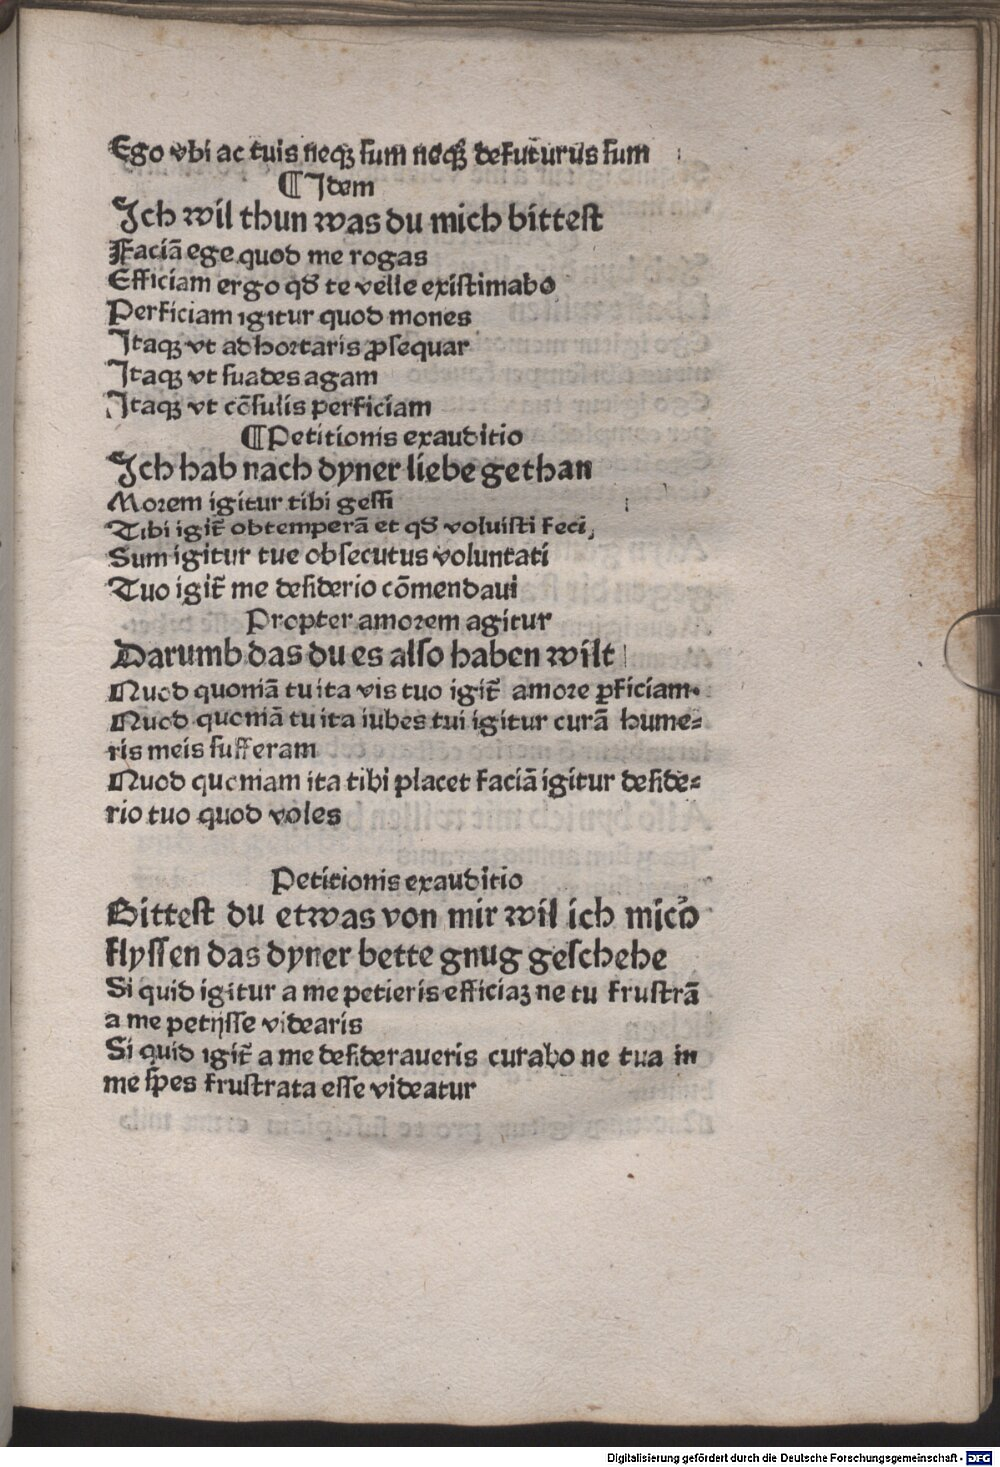 Ego vbi ac tuis neqꝫ sum neqꝫ defuturus sum
¶ Idem
Ich wil thun was du mich bittest
Faciā ege quod me rogas
Efficiam ergo qd̕ te velle existimabo
Perficiam igitur quod mones
Itaqꝫ vt adhortaris ꝓsequar
Itaqꝫ vt suades agam
Itaqꝫ vt cōsulis perficiam
¶ Petitionis exauditio
Ich hab nach dyner liebe gethan
Morem igitur tibi gessi
Tibi igit̃ obtemperā et qd̕ voluisti feci,
Sum igitur tue obsecutus voluntati
Tuo igit̃ me desiderio cōmendaui
Propter amorem agitur
Darumb das du es also haben wilt
Nuod quoniā tu ita vis tuo igit̃ amore ꝑficiam.
Nuod quoniā tu ita iubes tui igitur curā hume⸗
ris meis sufferam
Nuod quoniam ita tibi placet faciā igitur deside⸗
rio tuo quod voles
Petitionis exauditio
Bittest du etwas von mir wil ich mich
flyssen das dyner bette gnug geschehe
Si quid igitur a me petieris efficiaꝫ ne tu frustrā
a me petijsse videaris
Si quid igit̃ a me desideraueris curabo ne tua in
me spes frustrata esse videatur
Digitalisierung gefördert durch die Deutsche Forschungsgemeinschaft - DFG